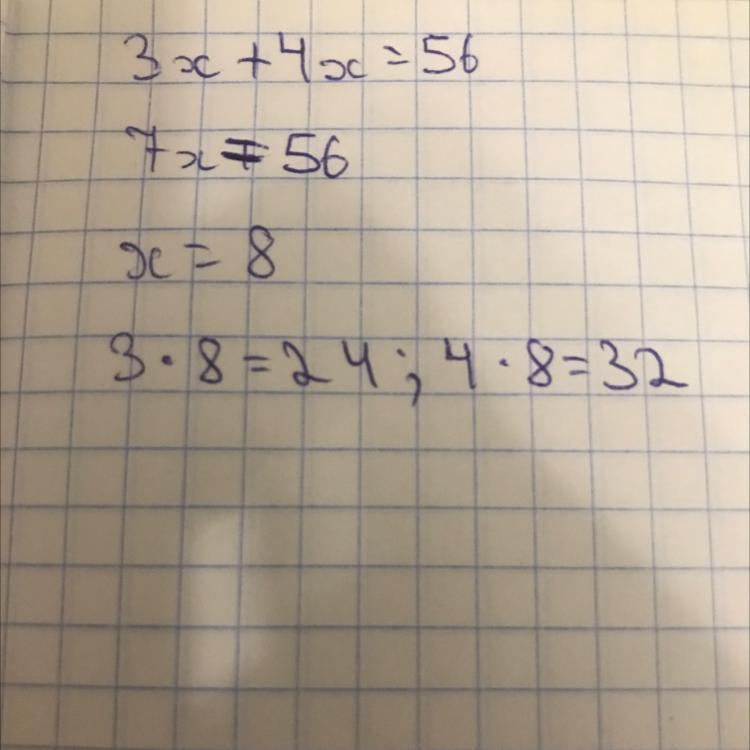 3x + 4x = 56
7x = 56
x = 8
3 · 8 = 24 ; 4 · 8 = 32